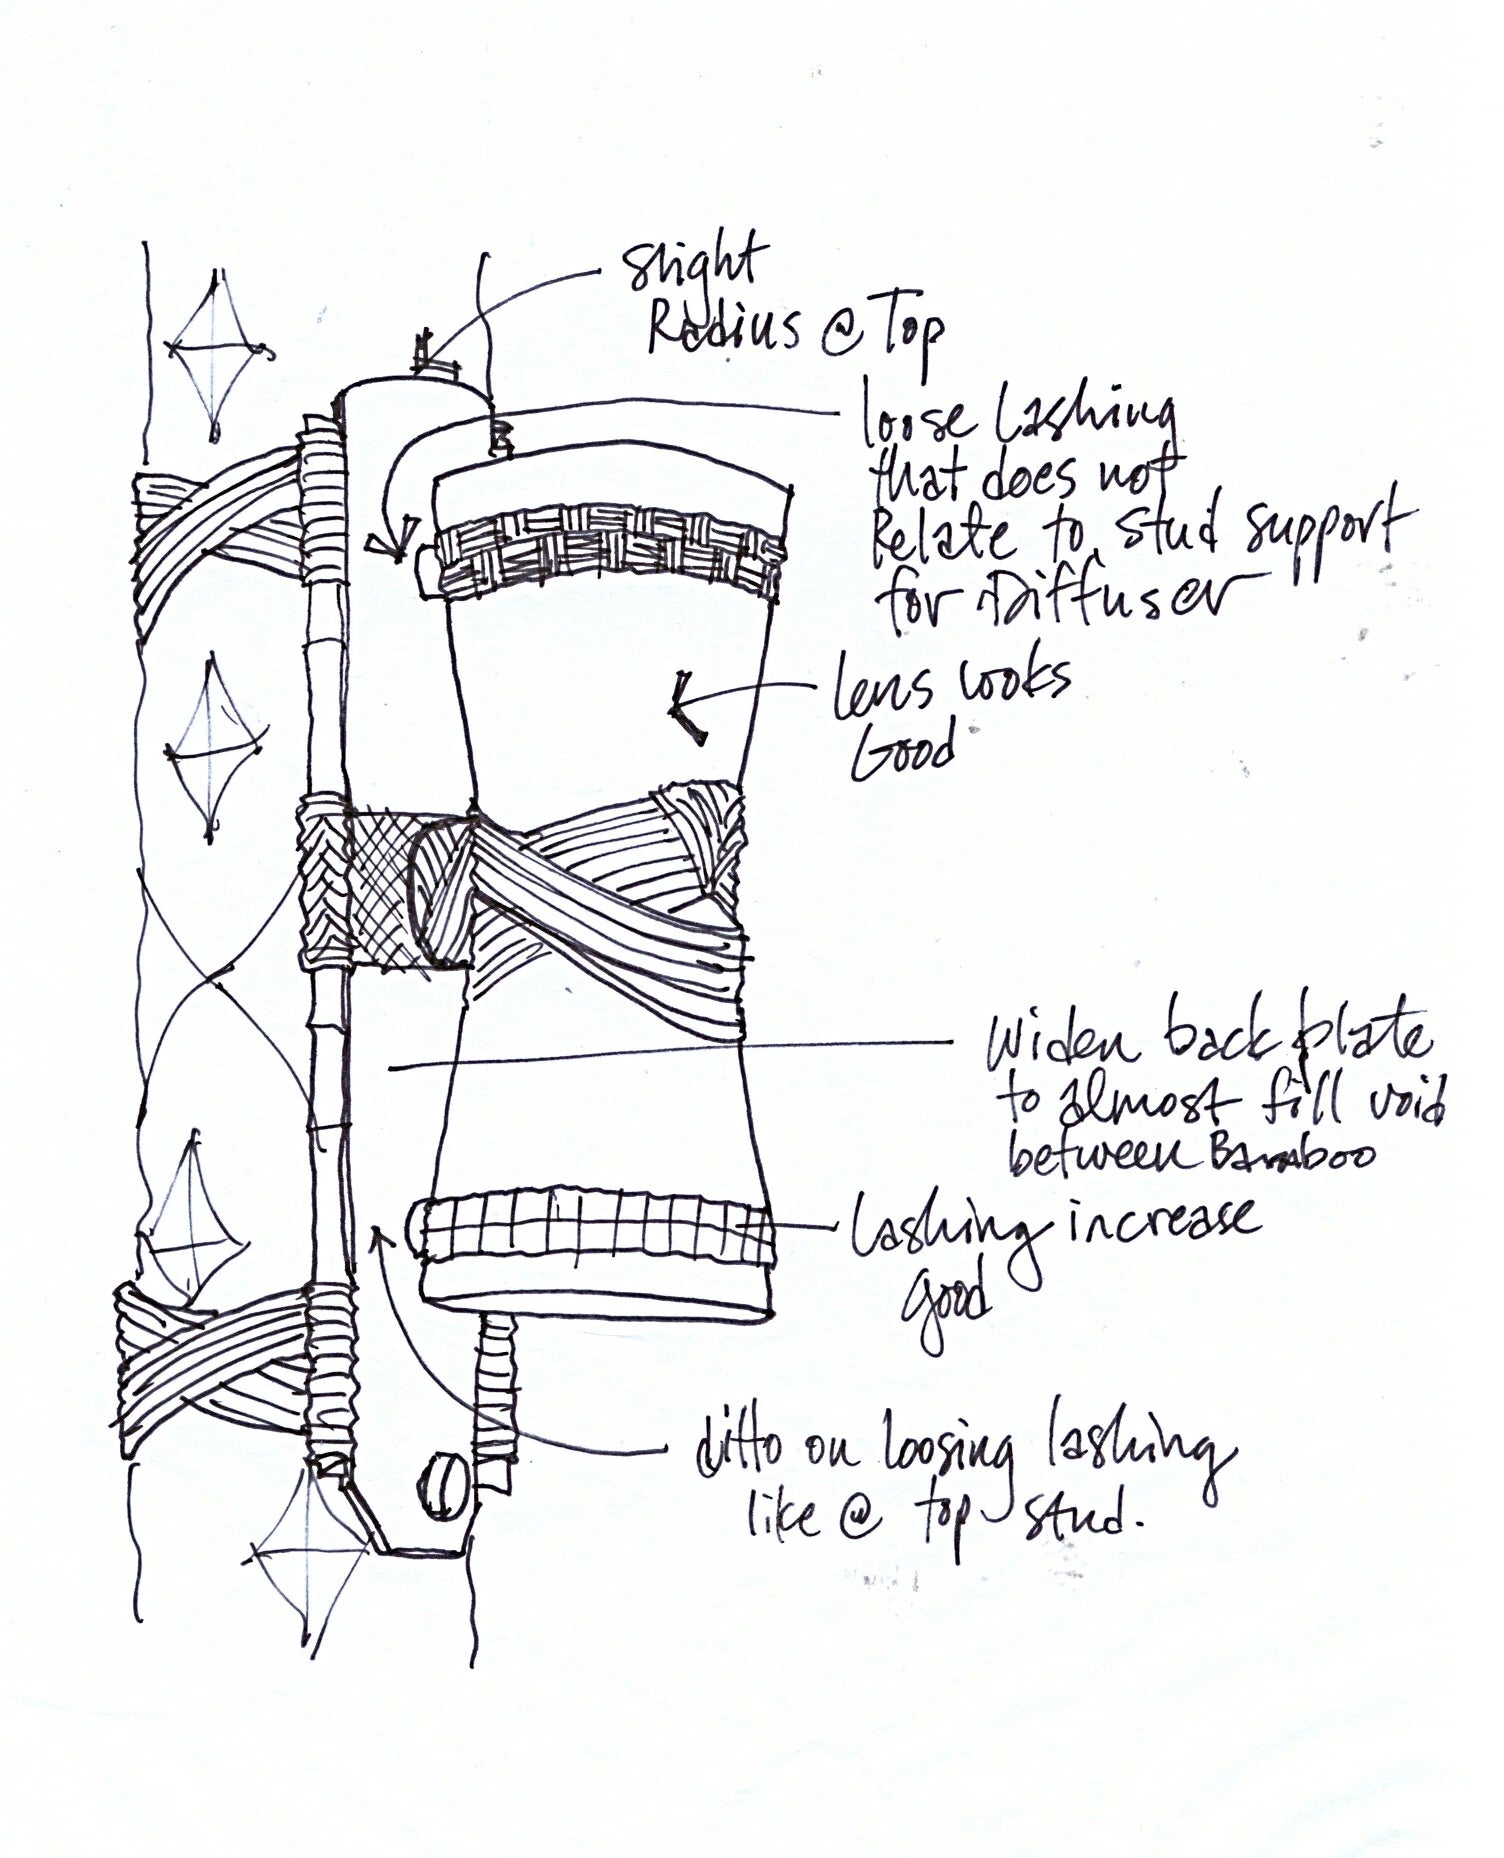 Slight
Radius @ Top
loose lashing
that does not
Relate to stud support
for Diffuser
lens looks
Good
widen back plate
to almost fill void
between Bamboo
lashing increase
good
ditto on loosing lashing
like @ top stud.